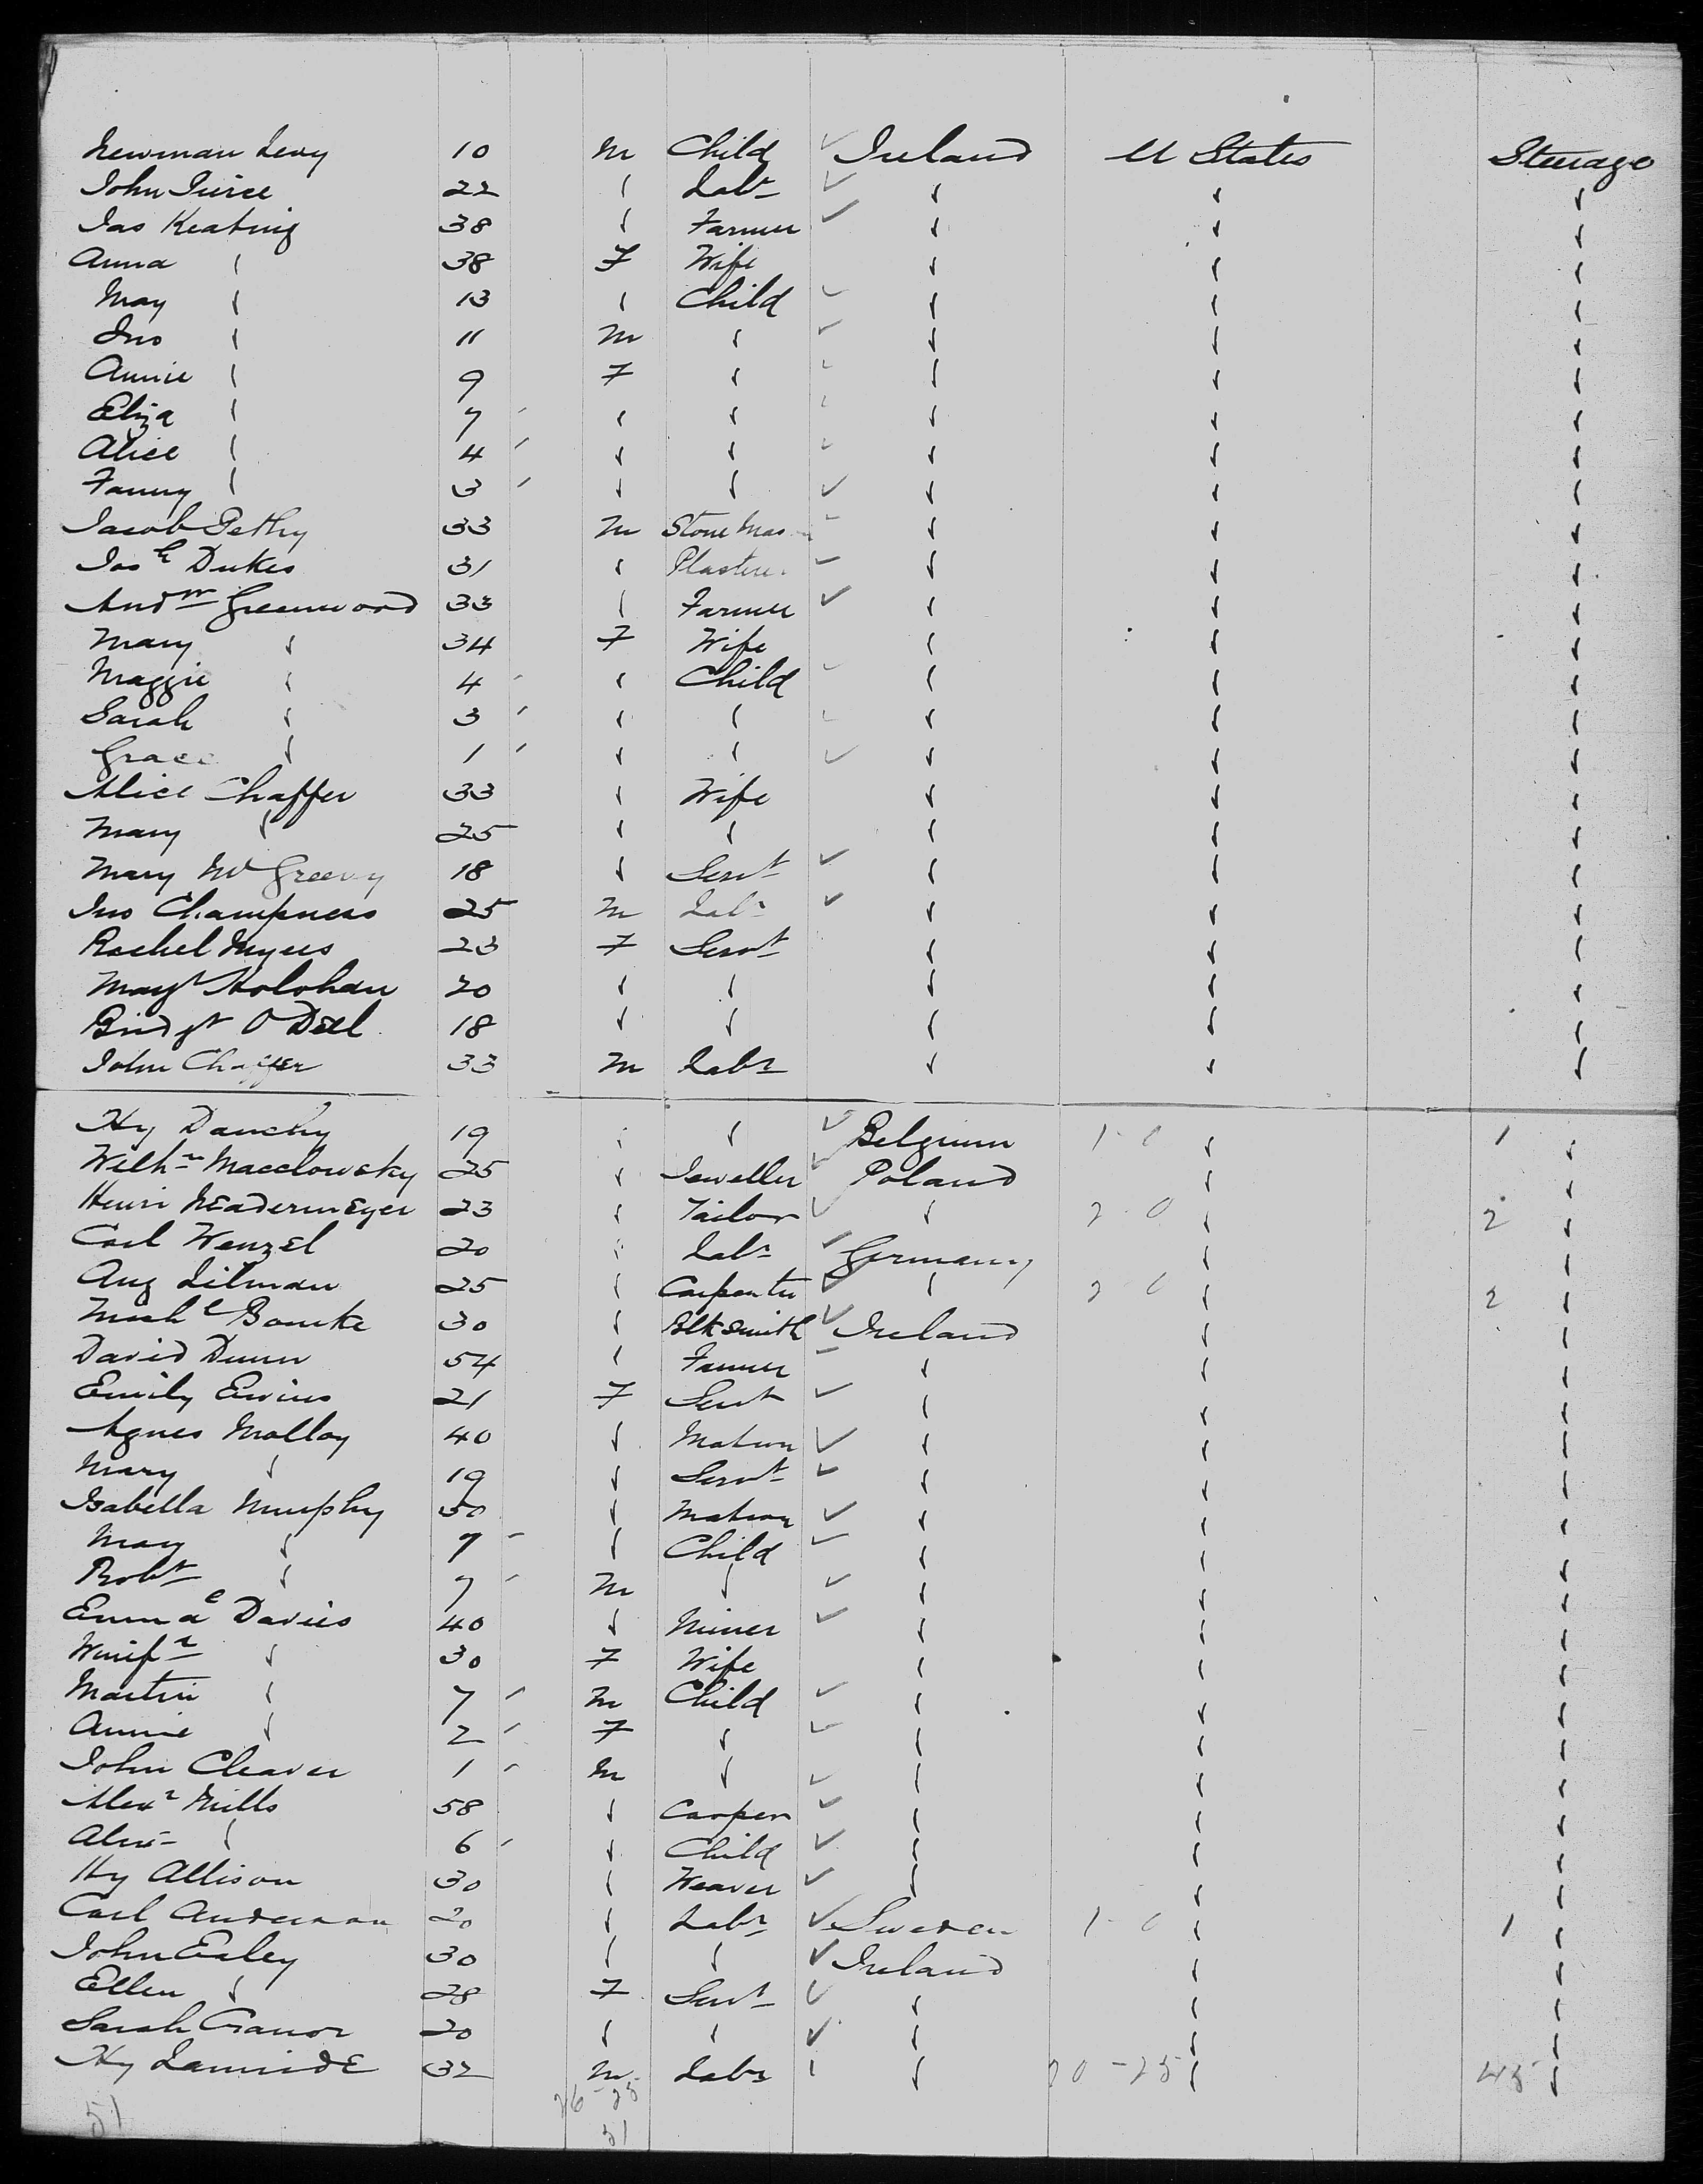 Newman Levy 10 M Child ✓ Ireland U States Steerage
John Peirce 22 " Labr ✓ " " "
Jas Keating 38 " Farmer ✓ " " "
Anna " 38 F Wife " " "
May " 13 " Child ✓ " " "
Jno " 11 M " ✓ " " "
Annie " 9 F " ✓ " " "
Eliza " 7 " " ✓ " " "
Alice " 4 " " ✓ " " "
Fanny " 3 " " ✓ " " "
Jacob Pethy 33 M Stone Mason ✓ " " "
Josh Dukes 31 " Plasterer ✓ " " "
Andw Greenwood 33 " Farmer ✓ " " "
Mary " 34 F Wife " " "
Maggie " 4 " Child ✓ " " "
Sarah " 3 " " ✓ " " "
Grace " 1 " " ✓ " " "
Alice Chaffer 33 " Wife " " "
Mary " 25 " " " " "
Mary McGreevy 18 " Servt ✓ " " "
Jno Champness 25 M Labr ✓ " " "
Rachel Myers 23 F Servt " " "
Magt Holohan 20 " " " " "
Bridgt O Dell 18 " " " " "
John Chaffer 33 M Labr " " "
Hy Danchy 19 " " ✓ Belgium 1-0 " 1 "
Wilhm Macclowsky 25 " Jeweller ✓ Poland " "
Henri Neadermeyer 23 " Tailor ✓ " 2-0 " 2 "
Carl Wenzel 20 " Labr ✓ Germany " "
Aug Lilman 25 " Carpenter ✓ " 2 0 " 2 "
Michl Bourke 30 " Blksmith ✓ Ireland " "
David Dunn 54 " Farmer ✓ " " "
Emily Ewins 21 F Servt ✓ " " "
Agnes Molloy 40 " Matron ✓ " " "
Mary " 19 " Servt ✓ " " "
Isabella Murphy 50 " Matron ✓ " " "
Mary " 9 " Child ✓ " " "
Robt " 7 M " ✓ " " "
Davies 40 " Miner ✓ " " "
Winifr " 30 F Wife " " "
Martin " 7 M Child ✓ " " "
Annie " 2 F " ✓ " " "
John Cleaver 1 M " ✓ " " "
Alexr Mills 58 " Cooper ✓ " " "
Alex " 6 " Child ✓ " " "
Hy Allison 30 " Weaver ✓ " " "
Carl Anderson 20 " Labr ✓ Sweden 1-0 " 1 "
John Ealey 30 " " ✓ Ireland " "
Ellen " 28 F Servt ✓ " " "
Sarah 20 " " ✓ " " "
Hy 32 M Labr " 20-25 " 45 "
51 26-25
51